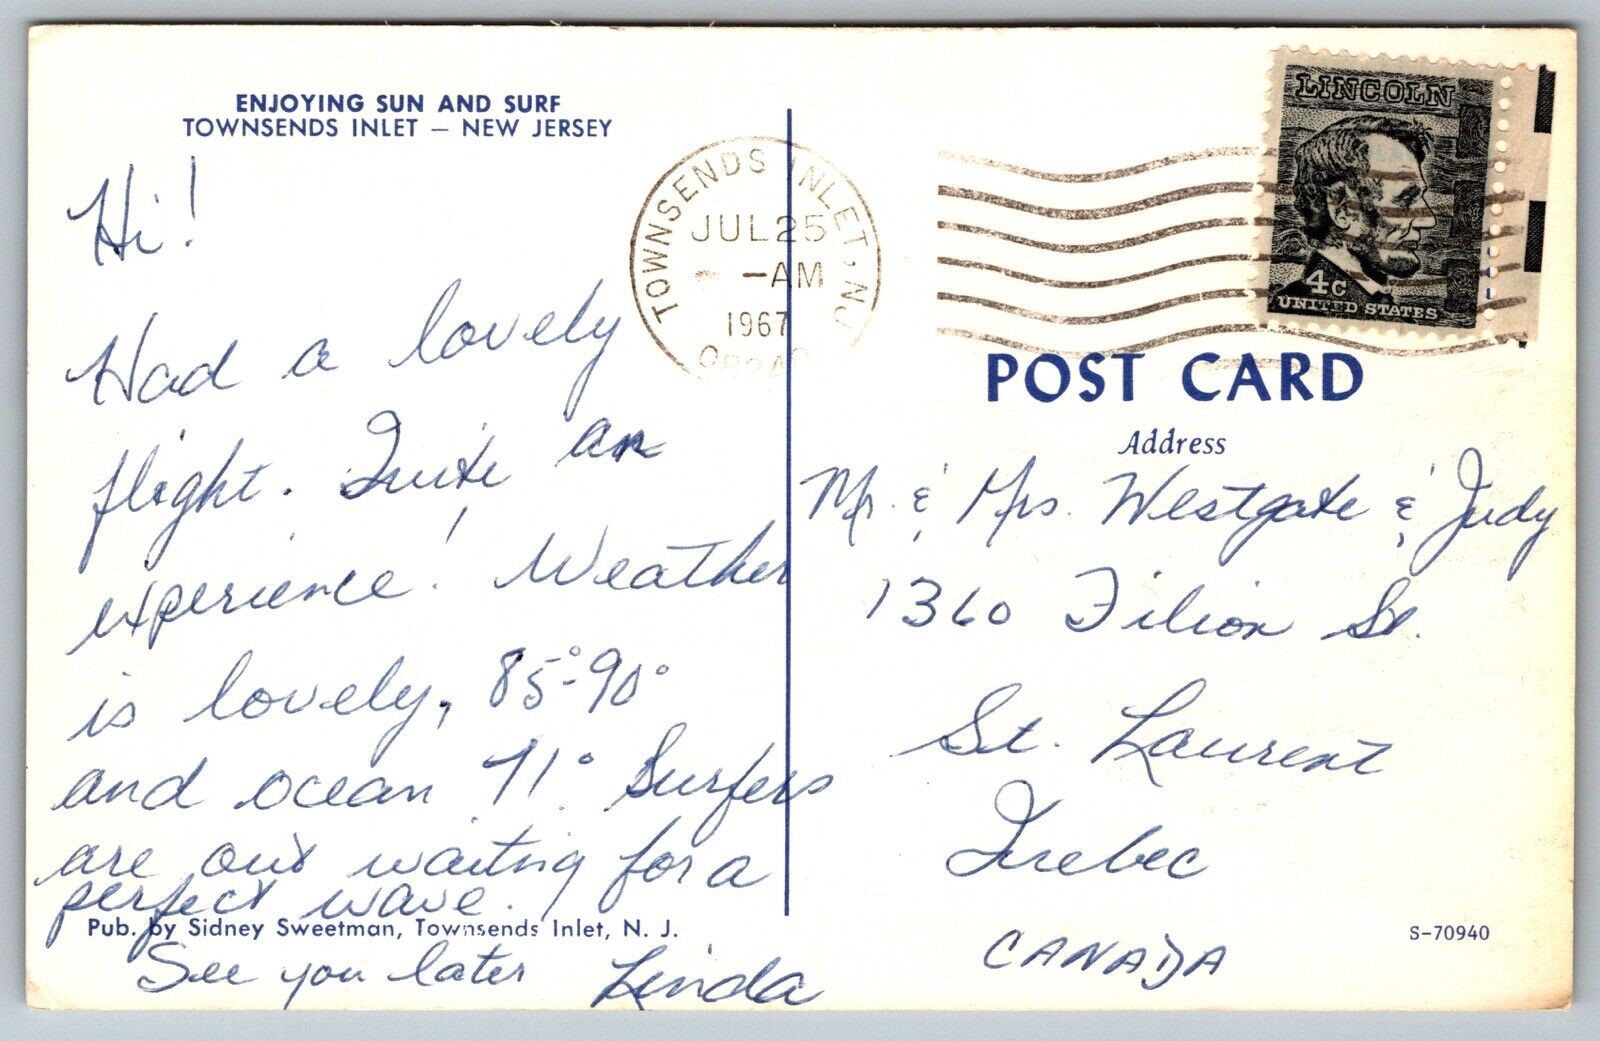 ENJOYING SUN AND SURF
TOWNSENDS INLET – NEW JERSEY
Hi!
Had a lovely
flight. Quite an
experience! Weather
is lovely, 85°-90°
and ocean 71°. Surfers
are out waiting for a
perfect wave.
Pub. by Sidney Sweetman, Townsends Inlet, N. J.
See you later Linda
TOWNSENDS INLET, NJ
JUL 25
-AM
1967
LINCOLN
4c
UNITED STATES
POST CARD
Address
Mr. & Mrs. Westgate & Judy
1360 Filion St.
St. Laurent
Quebec
CANADA
S-70940